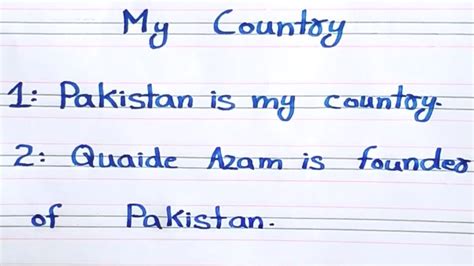 My Country
1: Pakistan is my country.
2: Quaide Azam is founder
of Pakistan.